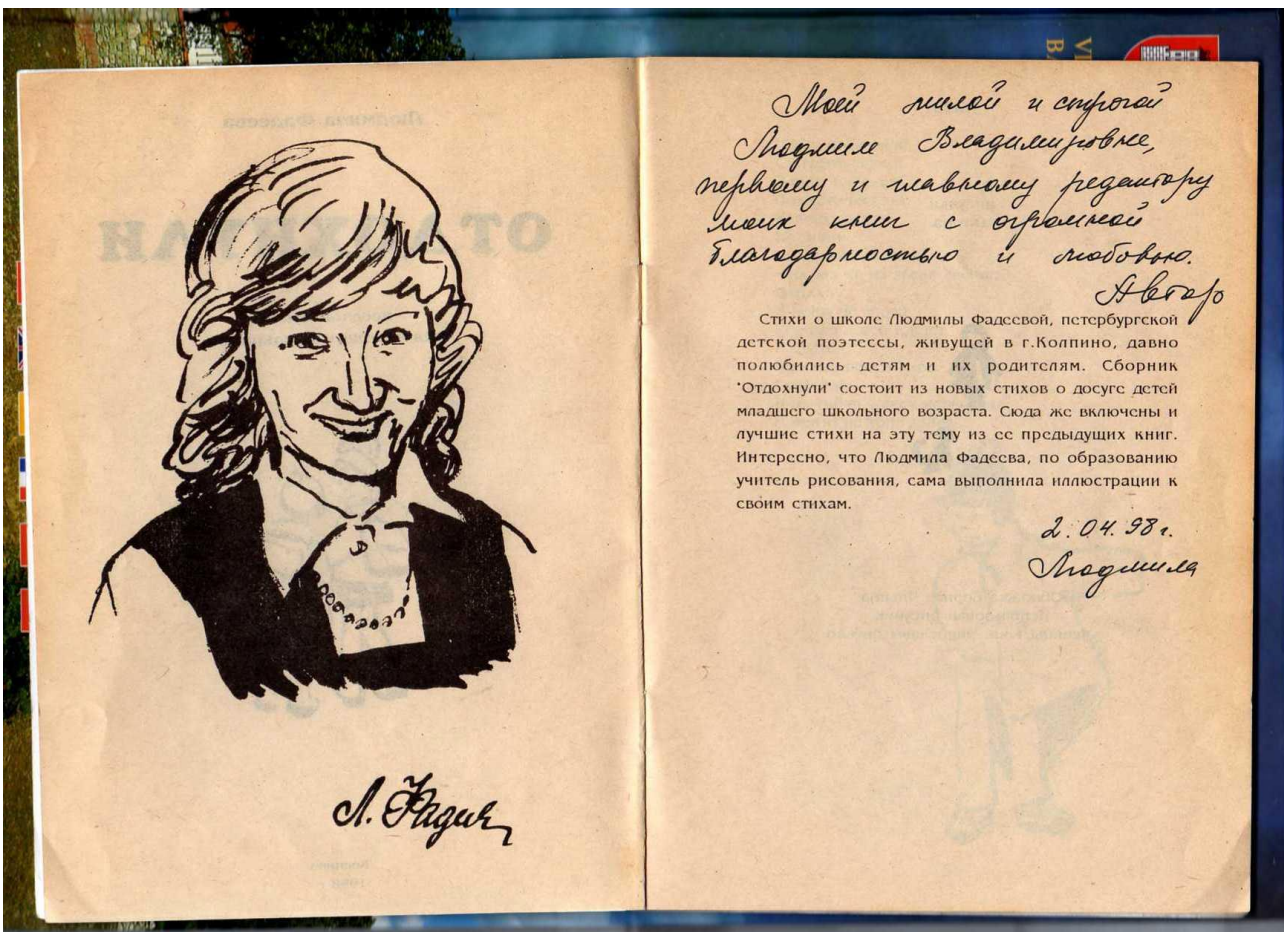 Л. Фадеева
Моей милой и строгой
Людмиле Владимировне,
первому и главному редактору
моих книг с огромной
благодарностью и любовью.
Автор
Стихи о школе Людмилы Фадеевой, петербургской
детской поэтессы, живущей в г.Колпино, давно
полюбились детям и их родителям. Сборник
"Отдохнули" состоит из новых стихов о досуге детей
младшего школьного возраста. Сюда же включены и
лучшие стихи на эту тему из ее предыдущих книг.
Интересно, что Людмила Фадеева, по образованию
учитель рисования, сама выполнила иллюстрации к
своим стихам.
2.04.98 г.
Людмила